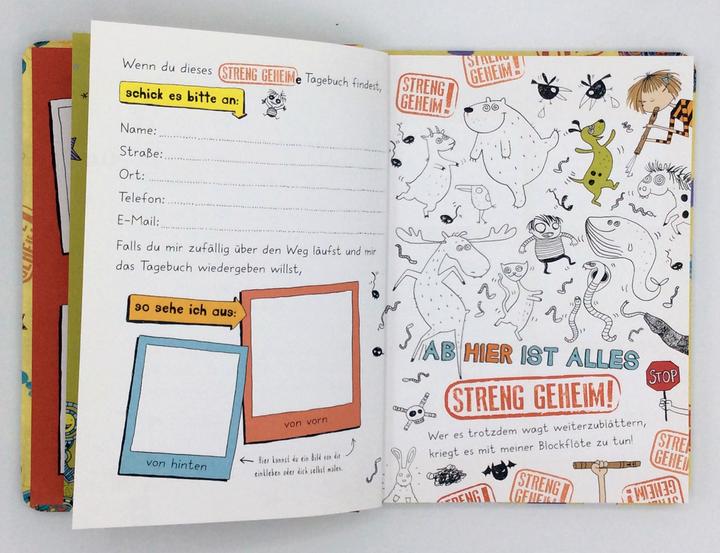 Wenn du dieses STRENG GEHEIMe Tagebuch findest,
schick es bitte an:
Name:
Straße:
Ort:
Telefon:
E-Mail:
Falls du mir zufällig über den Weg läufst und mir
das Tagebuch wiedergeben willst,
so sehe ich aus:
von vorn
von hinten
Hier kannst du ein Bild von dir
einkleben oder dich selbst malen.
STRENG
GEHEIM!
STRENG
GEHEIM!
AB HIER IST ALLES
STRENG GEHEIM!
STOP
Wer es trotzdem wagt weiterzublättern,
kriegt es mit meiner Blockflöte zu tun!
STRENG
GEHEIM
STRENG
STRENG
GEHEIM!
GEHEIM!